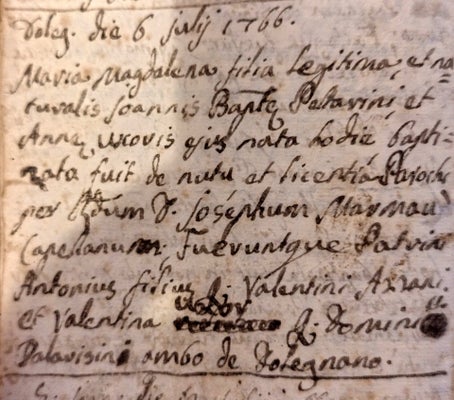 Doleg. die 6 Julij 1766.
Maria Magdalena filia legitima, et na
turalis Joannis Baptę Petavini, et
Annę uxoris ejus nata hodie bapti-
zata fuit de nutu et licentia Paroch
per Rdum D. Josephum Marmau
Capellanum. Fueruntque Patrin
Antonius filius q. Valentini
et Valentina uxor q. Domini
ambo de Dolegnano.